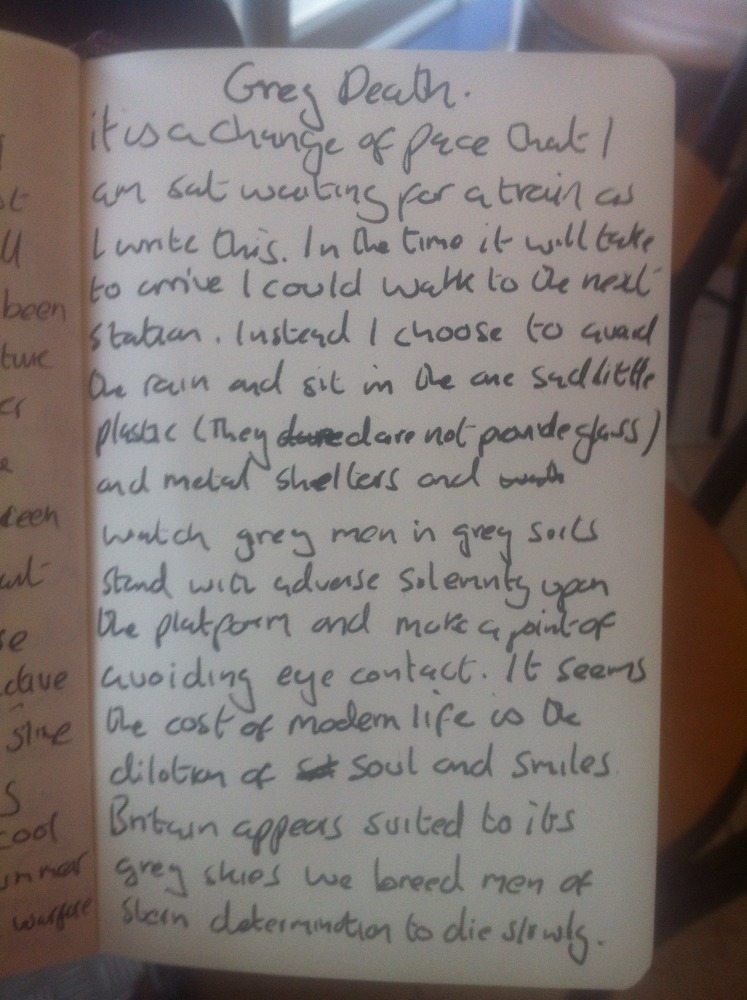 Grey Death.
it is a change of pace that I
am sat waiting for a train as
I write this. In the time it will take
to arrive I could walk to the next
station. Instead I choose to avoid
the rain and sit in the one sad little
plastic (They dare not provide glass)
and metal shelters and
watch grey men in grey suits
stand with adverse solemnity upon
the platform and make a point of
avoiding eye contact. It seems
the cost of modern life is the
dilution of soul and smiles.
Britain appears suited to its
grey skies we breed men of
stern determination to die slowly.
been